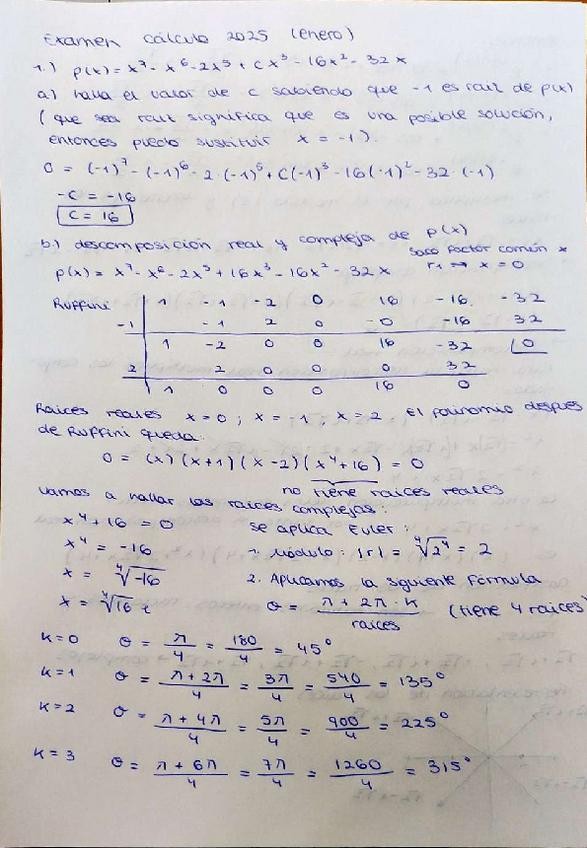 Examen cálculo 2025 (enero)
1.) p(x) = x⁷ - x⁶ - 2x⁵ + cx³ - 16x² - 32x
a) halla el valor de c sabiendo que -1 es raíz de p(x)
(que sea raíz significa que es una posible solución,
entonces puedo sustituir x = -1).
0 = (-1)⁷ - (-1)⁶ - 2·(-1)⁵ + c(-1)³ - 16(-1)² - 32·(-1)
-c = -16
c = 16
b) descomposición real y compleja de p(x)
saco factor común x
p(x) = x⁷ - x⁶ - 2x⁵ + 16x³ - 16x² - 32x r1 → x = 0
Ruffini 1 -1 -2 0 16 -16 -32
-1 -1 2 0 -0 -16 32
1 -2 0 0 16 -32 0
2 2 0 0 0 32
1 0 0 0 16 0
Raíces reales x = 0; x = -1, x = 2 El polinomio después
de Ruffini queda:
0 = (x)(x+1)(x-2)(x⁴+16) = 0
no tiene raíces reales
vamos a hallar las raíces complejas:
x⁴ + 16 = 0 se aplica Euler:
x⁴ = -16 1. Módulo: |r| = ⁴√2⁴ = 2
x = ⁴√-16 2. Aplicamos la siguiente fórmula
x = ⁴√16 i θ = π + 2π·k / raíces (tiene 4 raíces)
k=0 θ = π/4 = 180/4 = 45°
k=1 θ = π + 2π/4 = 3π/4 = 540/4 = 135°
k=2 θ = π + 4π/4 = 5π/4 = 900/4 = 225°
k=3 θ = π + 6π/4 = 7π/4 = 1260/4 = 315°